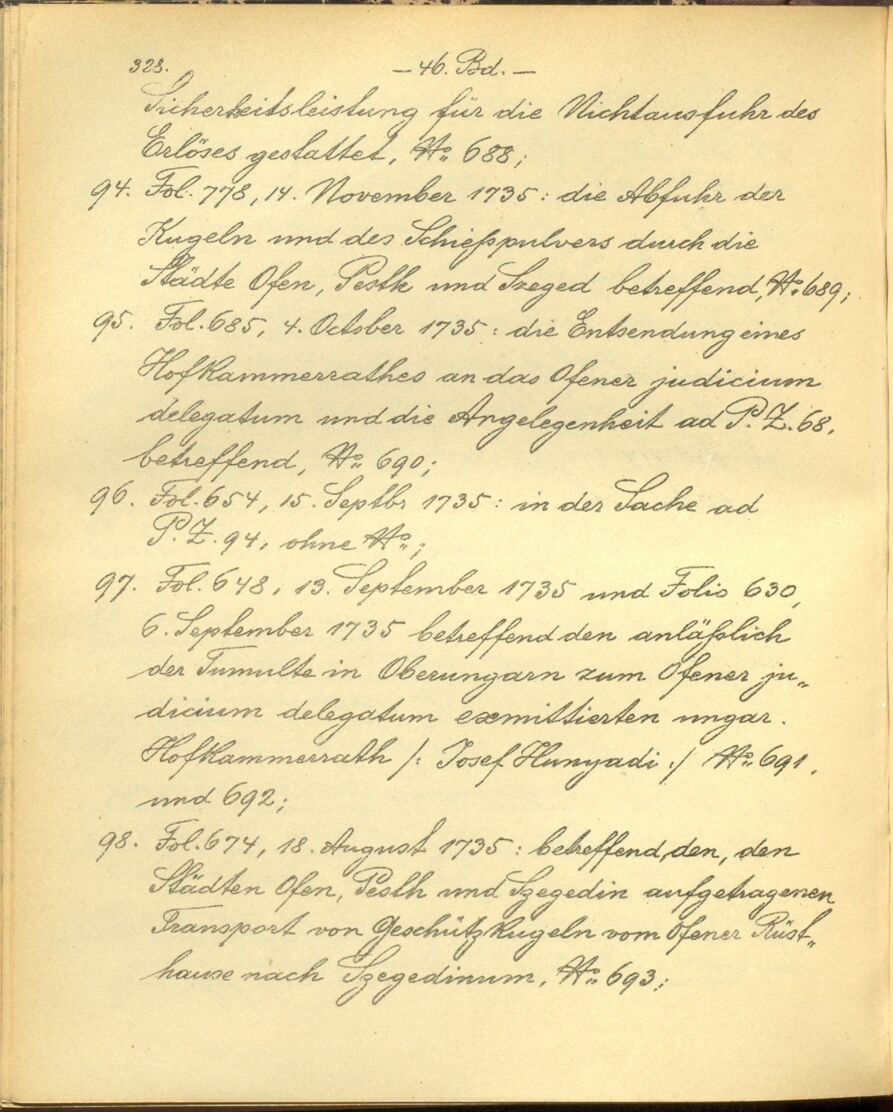 328. — 46. Bd. —
Sicherheitsleistung für die Nichtausfuhr des
Erlöses gestattet, No. 688;
94. Fol. 778, 14. November 1735: die Abfuhr der
Kugeln und des Schießpulvers durch die
Städte Ofen, Pesth und Szeged betreffend, No. 689;
95. Fol. 685, 4. October 1735: die Entsendung eines
Hofkammerrathes an das Ofener judicium
delegatum und die Angelegenheit ad P. Z. 68.
betreffend, No. 690;
96. Fol. 654, 15. Septbr 1735: in der Sache ad
P. Z. 94, ohne No.;
97. Fol. 648, 13. September 1735 und Folio 630,
6. September 1735 betreffend den anläßlich
der Tumulte in Oberungarn zum Ofener ju„
dicium delegatum exmittierten ungar.
Hofkammerrath /: Josef Hunyadi :/ No. 691.
und 692;
98. Fol. 674, 18. August 1735: betreffend den, den
Städten Ofen, Pesth und Szegedin aufgetragenen
Transport von Geschützkugeln vom Ofener Rüst„
hause nach Szegedinum, No. 693;